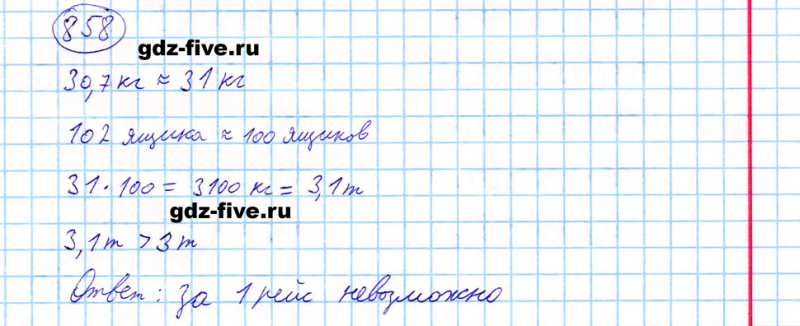 858
gdz-five.ru
30,7 кг ≈ 31 кг
102 ящика ≈ 100 ящиков
31 · 100 = 3100 кг = 3,1 т
gdz-five.ru
3,1 т > 3 т
Ответ: за 1 рейс невозможно